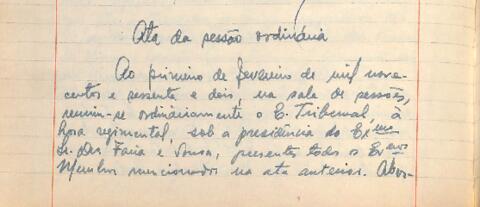 Ata da sessão ordinária
Ao primeiro de fevereiro de mil nove-
centos e sessenta e dois, na sala de sessões,
reuniu-se ordináriamente o E. Tribunal, à
hora regimental, sob a presidência do Exmo
Sr. Des. Faria e Sousa, presentes todos os Exmos
Membros mencionados na ata anterior. Aber-